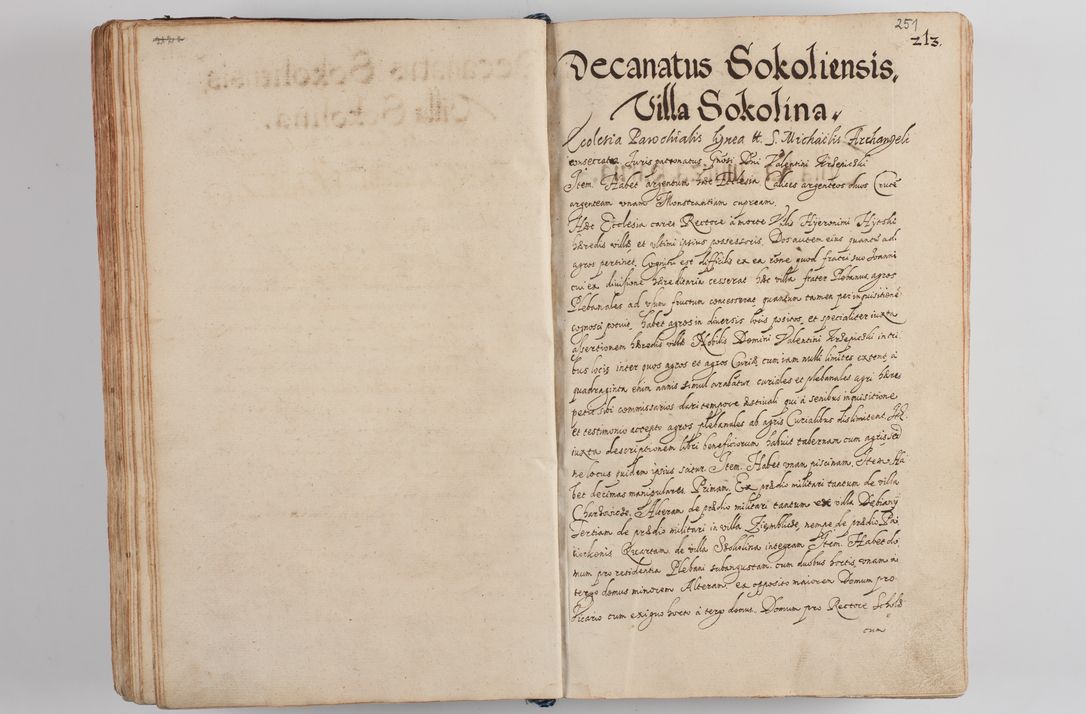 251
213.
Decanatus Sokoliensis.
Villa Sokolina.
Ecclesia Parochialis lignea tt. S. Michaelis Archangeli
consecrata Juris patronatus Gnosi Dni Valentini
Item. Habet argentum haec Ecclesia Calices argenteos duos Crucē
argenteam unam Monstrantiam cupream.
Haec Ecclesia caret Rectore à morte Hyeronimi
haeredis villae et ultimi ipsius possessoris, Dos autem eius quantū ad
agros pertinet, Cognitu est difficilis ex ea rōne quod fratri suo Joanni
cui ex divisione haereditaria cesserat haec villa frater Plebanus agros
Plebanales ad usum fructum concesserat quantum tamen per inquisitionē
cognosci potuit, habet agros in diversis locis positos, et specialiter iuxta
assertionem haeredis villae Nobilis Domini Valentini in tri
bus locis inter quos agros et agros Curiae, cum iam nulli limites extent, à
quadraginta enim annis simul arabātur curiales et plebanales agri haeres
petit sibi commissarios dari tempore aestivali qui à senibus inquisitione
et testimonio accepto agros plebanales ab agris Curialibus dislimitent
iuxta descriptionem libri beneficiorum habuit tabernam cum agris sed
ne locus quidem ipsius scitur. Item. Habet unam piscinam, Item Ha
bet decimas manipulares. Primam Ex praedio militari tantum de villa
Alteram de praedio militari tantum ex villa Debiany
Tertiam de praedio militari in villa nempe de praedio
Quartam de villa Sokolina integram Item. Habet do
mum pro residentia Plebani subangustam cum duobus hortis, unam à
tergo domus minorem Alteram, ex opposito maiorem Domum pro
Vicario cum exiguo horto à tergo domus. Domum pro Rectore Scholae
cum